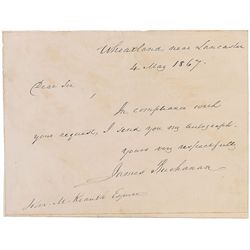 Wheatland near Lancaster
4 May 1867.
Dear Sir
In compliance with
your request, I send you my autograph.
yours very respectfully
James Buchanan
Esquire